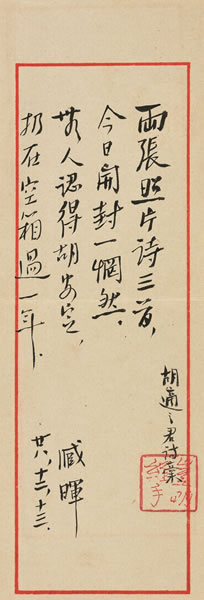 兩張照片詩三首，
今日開封一惘然，
無人認得胡安定，
扔在空箱過一年．
臧暉
廿八，十二，十三．
胡適之君詩藁